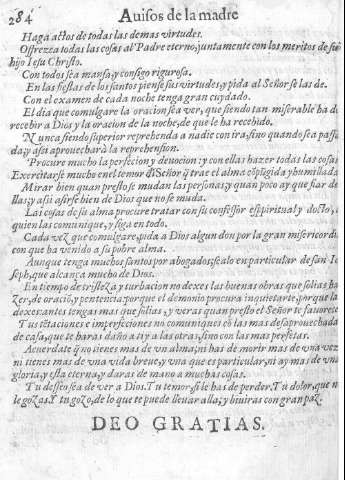 284 Auisos de la madre
Haga actos de todas las demas virtudes.
Ofrezca todas las cosas al Padre eterno, juntamente con los meritos de su
hijo Iesu Christo.
Con todos sea mansa, y consigo rigurosa.
En las fiestas de los santos piense sus virtudes, y pida al Señor se las de.
Con el examen de cada noche tenga gran cuydado.
El dia que comulgare la oracion sea ver, que siendo tan miserable ha de
recebir a Dios y la oracion de la noche, de que le ha recebido.
Nunca siendo superior reprehenda a nadie con ira, sino quando sea passa
da, y assi aprouechará la reprehension.
Procure mucho la perfecion y deuocion: y con ellas hazer todas las cosas
Exercitarse mucho en el temor dl Señor q̃ trae el alma cõpũgida y humillada
Mirar bien quan presto se mudan las personas, y quan poco ay que fiar de
llas, y assi asirse bien de Dios que no se muda.
Las cosas de su alma procure tratar con su confessor espiritual y docto, a
quien las comunique, y siga en todo.
Cada vez que comulgare, pida a Dios algun don por la gran misericordia
con que ha venido a su pobre alma.
Aunque tenga muchos santos por abogados, sealo en particular de san Io
seph, que alcança mucho de Dios.
En tiempo de tristeza y turbacion no dexes las buenas obras que solias ha
zer, de oració, y penitencia porque el demonio procura inquietarte, porque las
dexes: antes tengas mas que solias, y veras quan presto el Señor te fauorece
Tus tẽtaciones e imperfeciones no comuniques cõ las mas desaprouechadas
de casa, que te haras daño a ti y a las otras, sino con las mas perfetas.
Acuerdate q̃ no tienes mas de vn alma, ni has de morir mas de vna vez
ni tienes mas de vna vida breue, y vna que es particular, ni ay mas de vna
gloria, y esta eterna, y daras de mano a muchas cosas.
Tu desseo sea de ver a Dios. Tu temor, si le has de perder. Tu dolor, que no
le gozas. Y tu gozo, de lo que te puede lleuar alla; y biuiras con gran paz.
DEO GRATIAS.